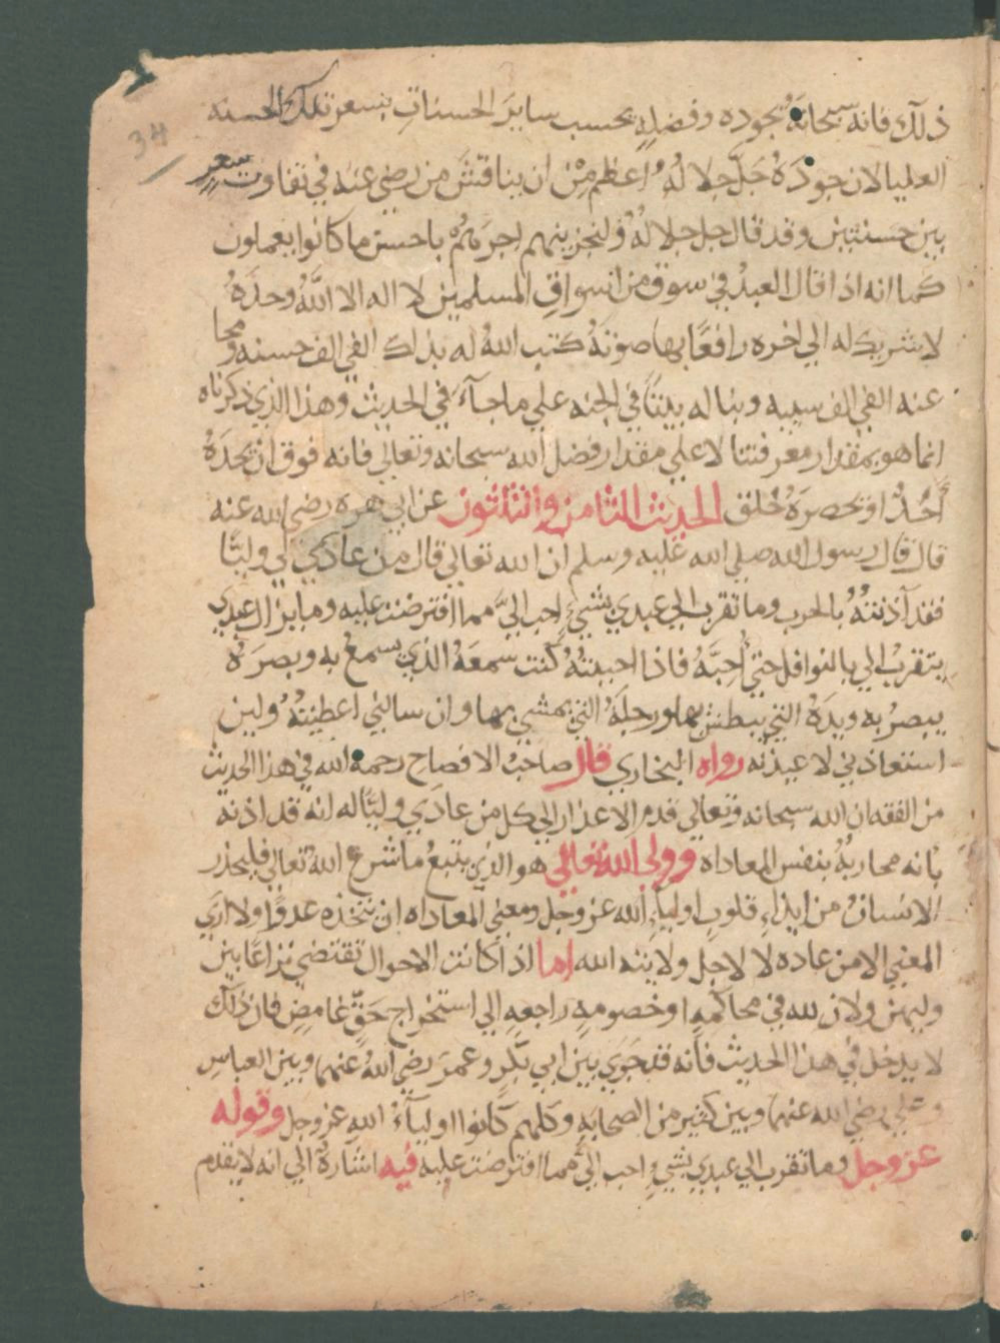 34
ذلك فانه سبحانه بجوده وفضله يحسب ساير الحسنات بسعر تلك الحسنه
العليا لان جوده جل جلاله اعظم من ان يناقش من رضي عنه في تفاوت سعر
بين حسنتين وقد قال جل جلاله ولنجزينهم اجرهم باحسن ما كانوا يعملون
كما انه اذا قال العبد في سوق من اسواق المسلمين لا اله الا الله وحده
لا شريك له الي اخره رافعا بها صوته كتب الله له بذلك الفي الف حسنه ومحا
عنه الفي الف سييه وبنا له بيتا في الجنه علي ما جاء في الحديث وهذا الذي ذكرناه
انما هو بمقدار معرفتنا لا علي مقدار فضل الله سبحانه وتعالي فانه فوق ان يحده
أحد او يحصره خلق الحديث الثامن والثلثون عن ابي هره رضي الله عنه
قال قال رسول الله صلي الله عليه وسلم ان الله تعالي قال من عادي لي وليا
فقد آذنته بالحرب وما تقرب الي عبدي بشيء احب الي مما افترضت عليه وما يزال عبدي
يتقرب الي بالنوافل حتي أحبه فاذا احببته كنت سمعه الذي يسمع به وبصره
يبصر به ويده التي يبطش بها ورجله التي يمشي بها وان سالني اعطيته ولين
استعاذني لاعيذنه رواه البخاري قال صاحب الافصاح رحمه الله في هذا الحديث
من الفقه ان الله سبحانه وتعالي قدم الاعذار الي كل من عادي وليا له انه قد اذنه
بانه محاربه بنفس المعاداه وولي الله تعالي هو الذي يتبع ما شرع الله تعالي فليحذر
الانسان من ايذاء قلوب اولياء الله عز وجل ومعني المعاداه ان يتخذه عدوا ولا اري
المعني الا من عاداه لاجل ولايته الله اما اذا كانت الاحوال تقتضي نزاعا بين
وليين ولان لله في محاكمه او خصومه راجعه الي استخراج حق غامض فان ذلك
لا يدخل في هذا الحديث فانه قد جري بين ابي بكر وعمر رضي الله عنهما وبين العباس
وعلي رضي الله عنهما وبين كثير من الصحابه وكلهم كانوا اولياء الله عز وجل وقوله
عز وجل وما تقرب الي عبدي بشيء احب الي مما افترضت عليه فيه اشارة الي انه لا يقدم